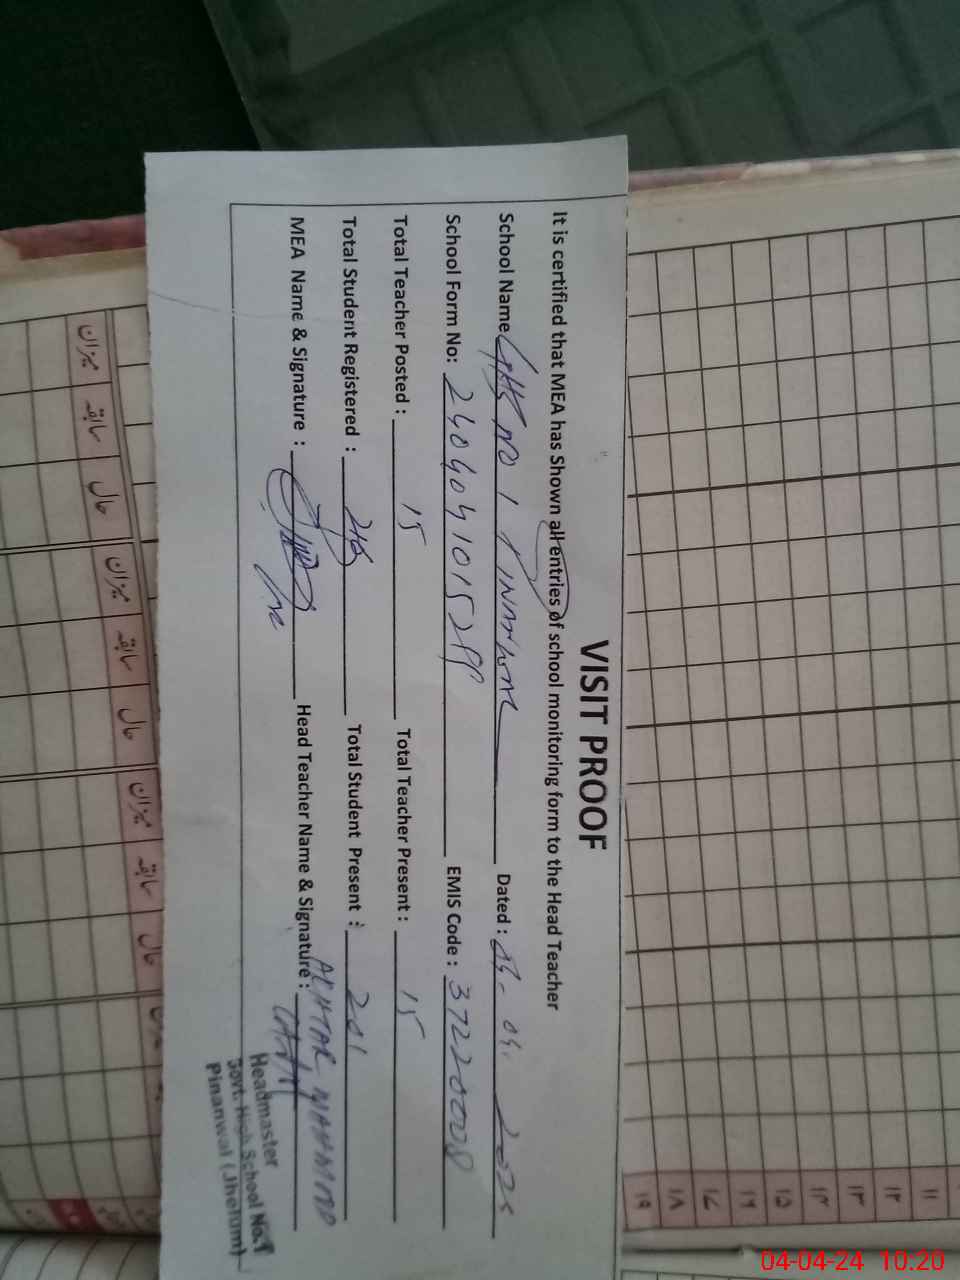 VISIT PROOF
It is certified that MEA has Shown all entries of school monitoring form to the Head Teacher
School Name GHS NO 1 PINANWAL Dated : 04- 04- 2024
School Form No: EMIS Code : 37220008
Total Teacher Posted : 15 Total Teacher Present : 15
Total Student Registered : 216 Total Student Present : 201
MEA Name & Signature : Head Teacher Name & Signature : AKHTAR MAHMOOD
Headmaster
Govt. High School No.1
Pinanwal (Jhelum)
میزان سابقہ حال میزان سابقہ حال میزان سابقہ حال
۱۱
۱۲
۱۳
۱۴
۱۵
۱۶
۱۷
۱۸
۱۹
04-04-24 10:20